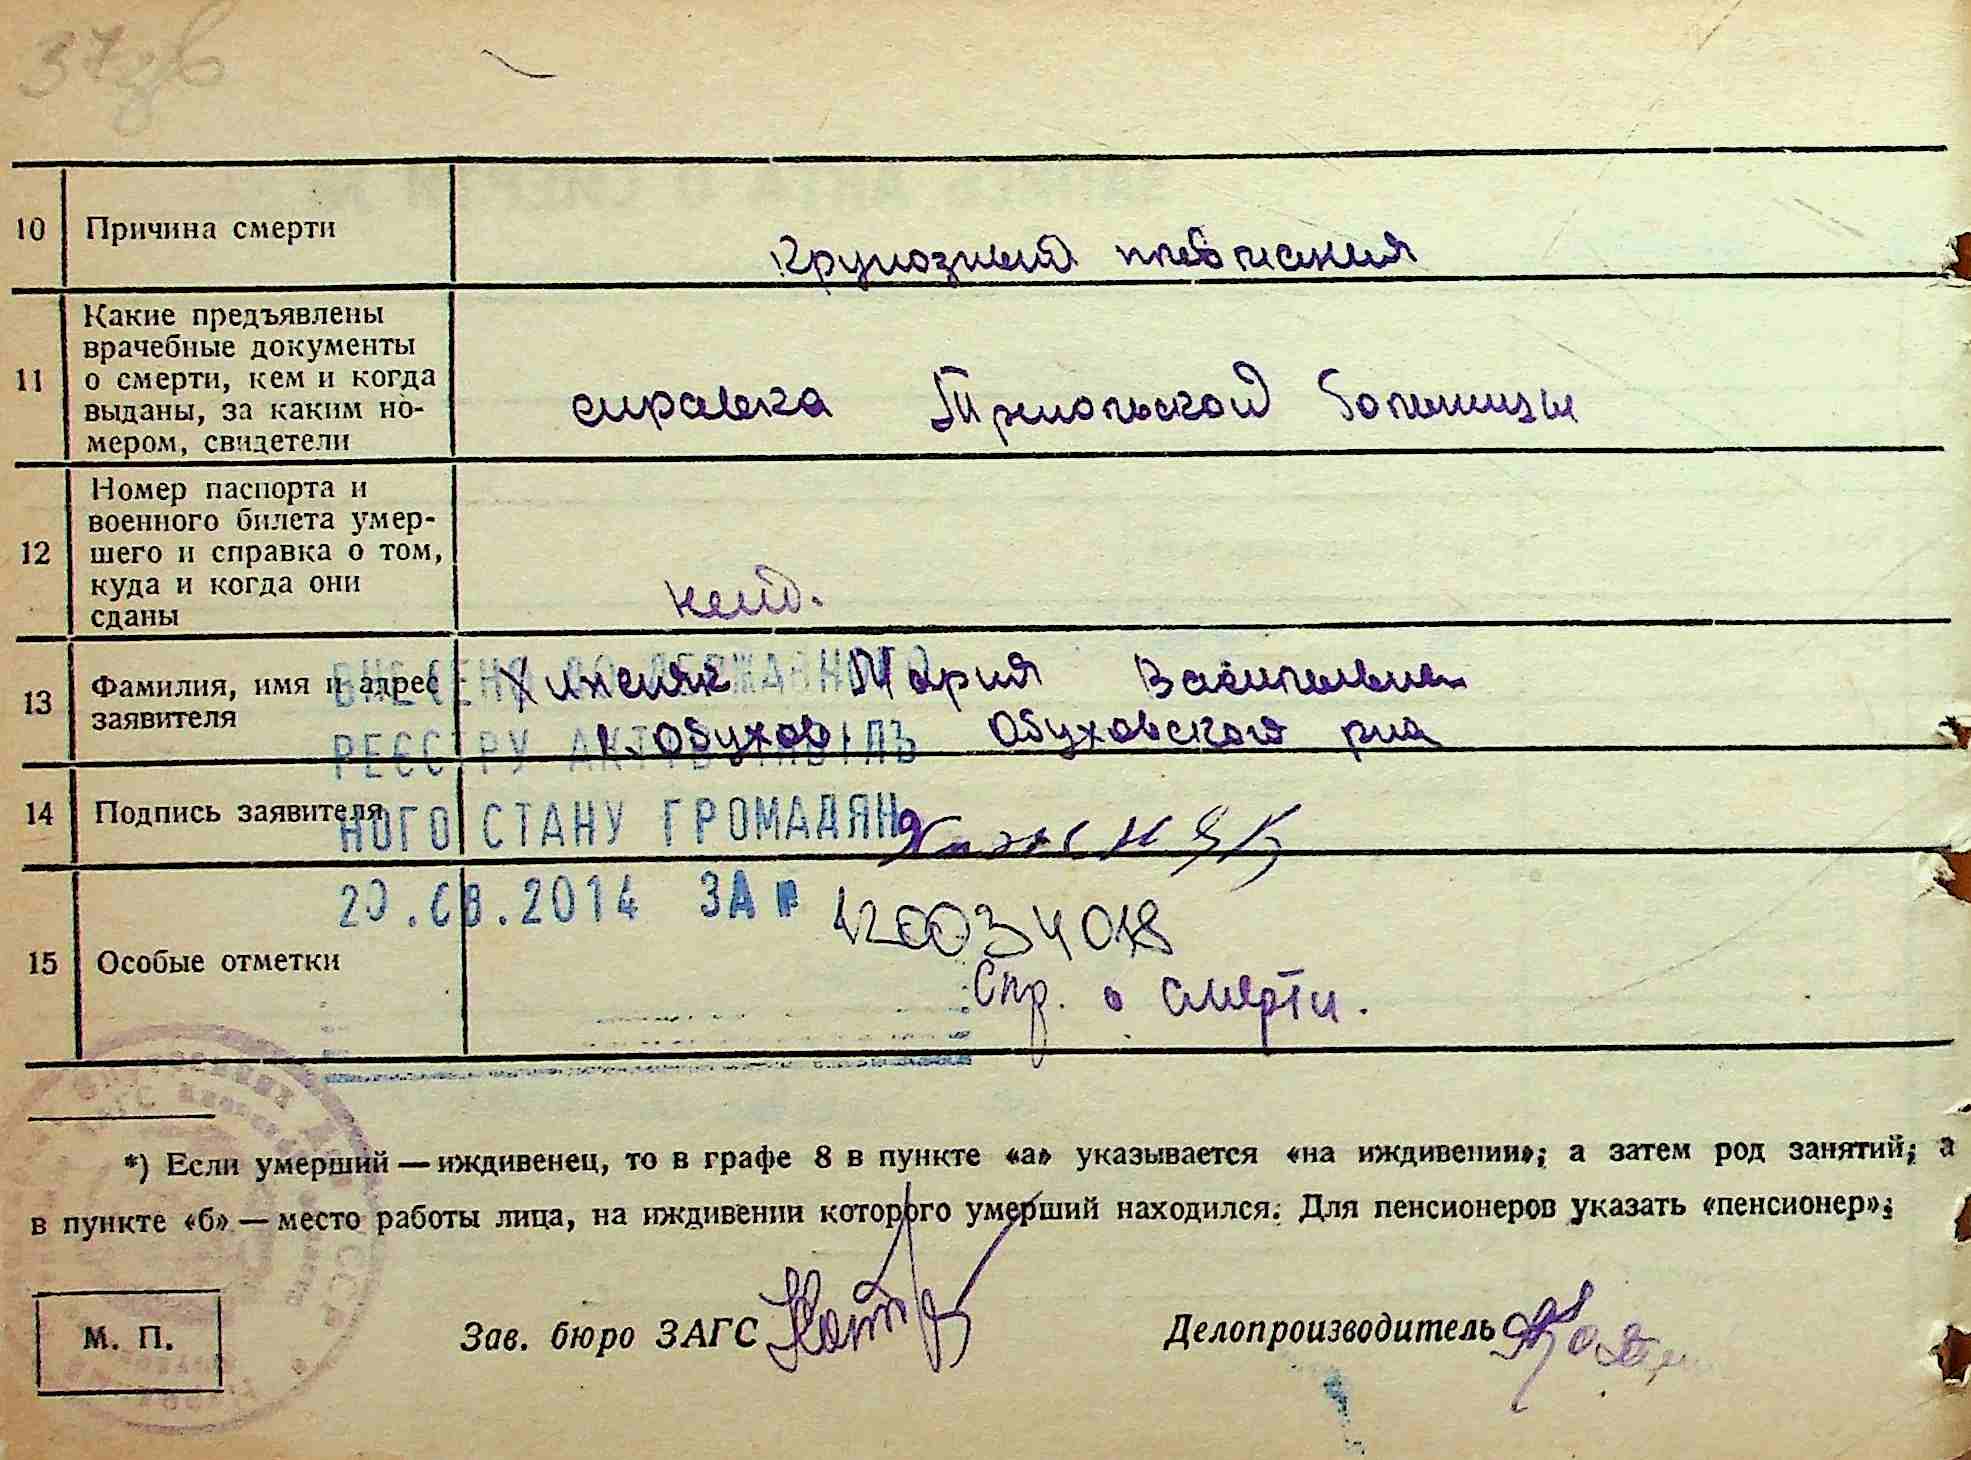 10 Причина смерти
крупозный пневмония
11 Какие предъявлены
врачебные документы
о смерти, кем и когда
выданы, за каким но-
мером, свидетели
справка Трипольской больницы
12 Номер паспорта и
военного билета умер-
шего и справка о том,
куда и когда они
сданы
13 Фамилия, имя и адрес
заявителя
Хижняк Мария Васильевна
г. Обухов Обуховского р-на
ВНЕСЕНО ДО ДЕРЖАВНОГО
РЕЄСТРУ АКТІВ ЦИВІЛЬ
НОГО СТАНУ ГРОМАДЯН
14 Подпись заявителя
Хижняк
2014 ЗА №
15 Особые отметки
Спр. о смерти.
*) Если умерший — иждивенец, то в графе 8 в пункте «а» указывается «на иждивении»; а затем род занятий; а
в пункте «б» — место работы лица, на иждивении которого умерший находился. Для пенсионеров указать «пенсионер»;
М. П.
Зав. бюро ЗАГС
Делопроизводитель